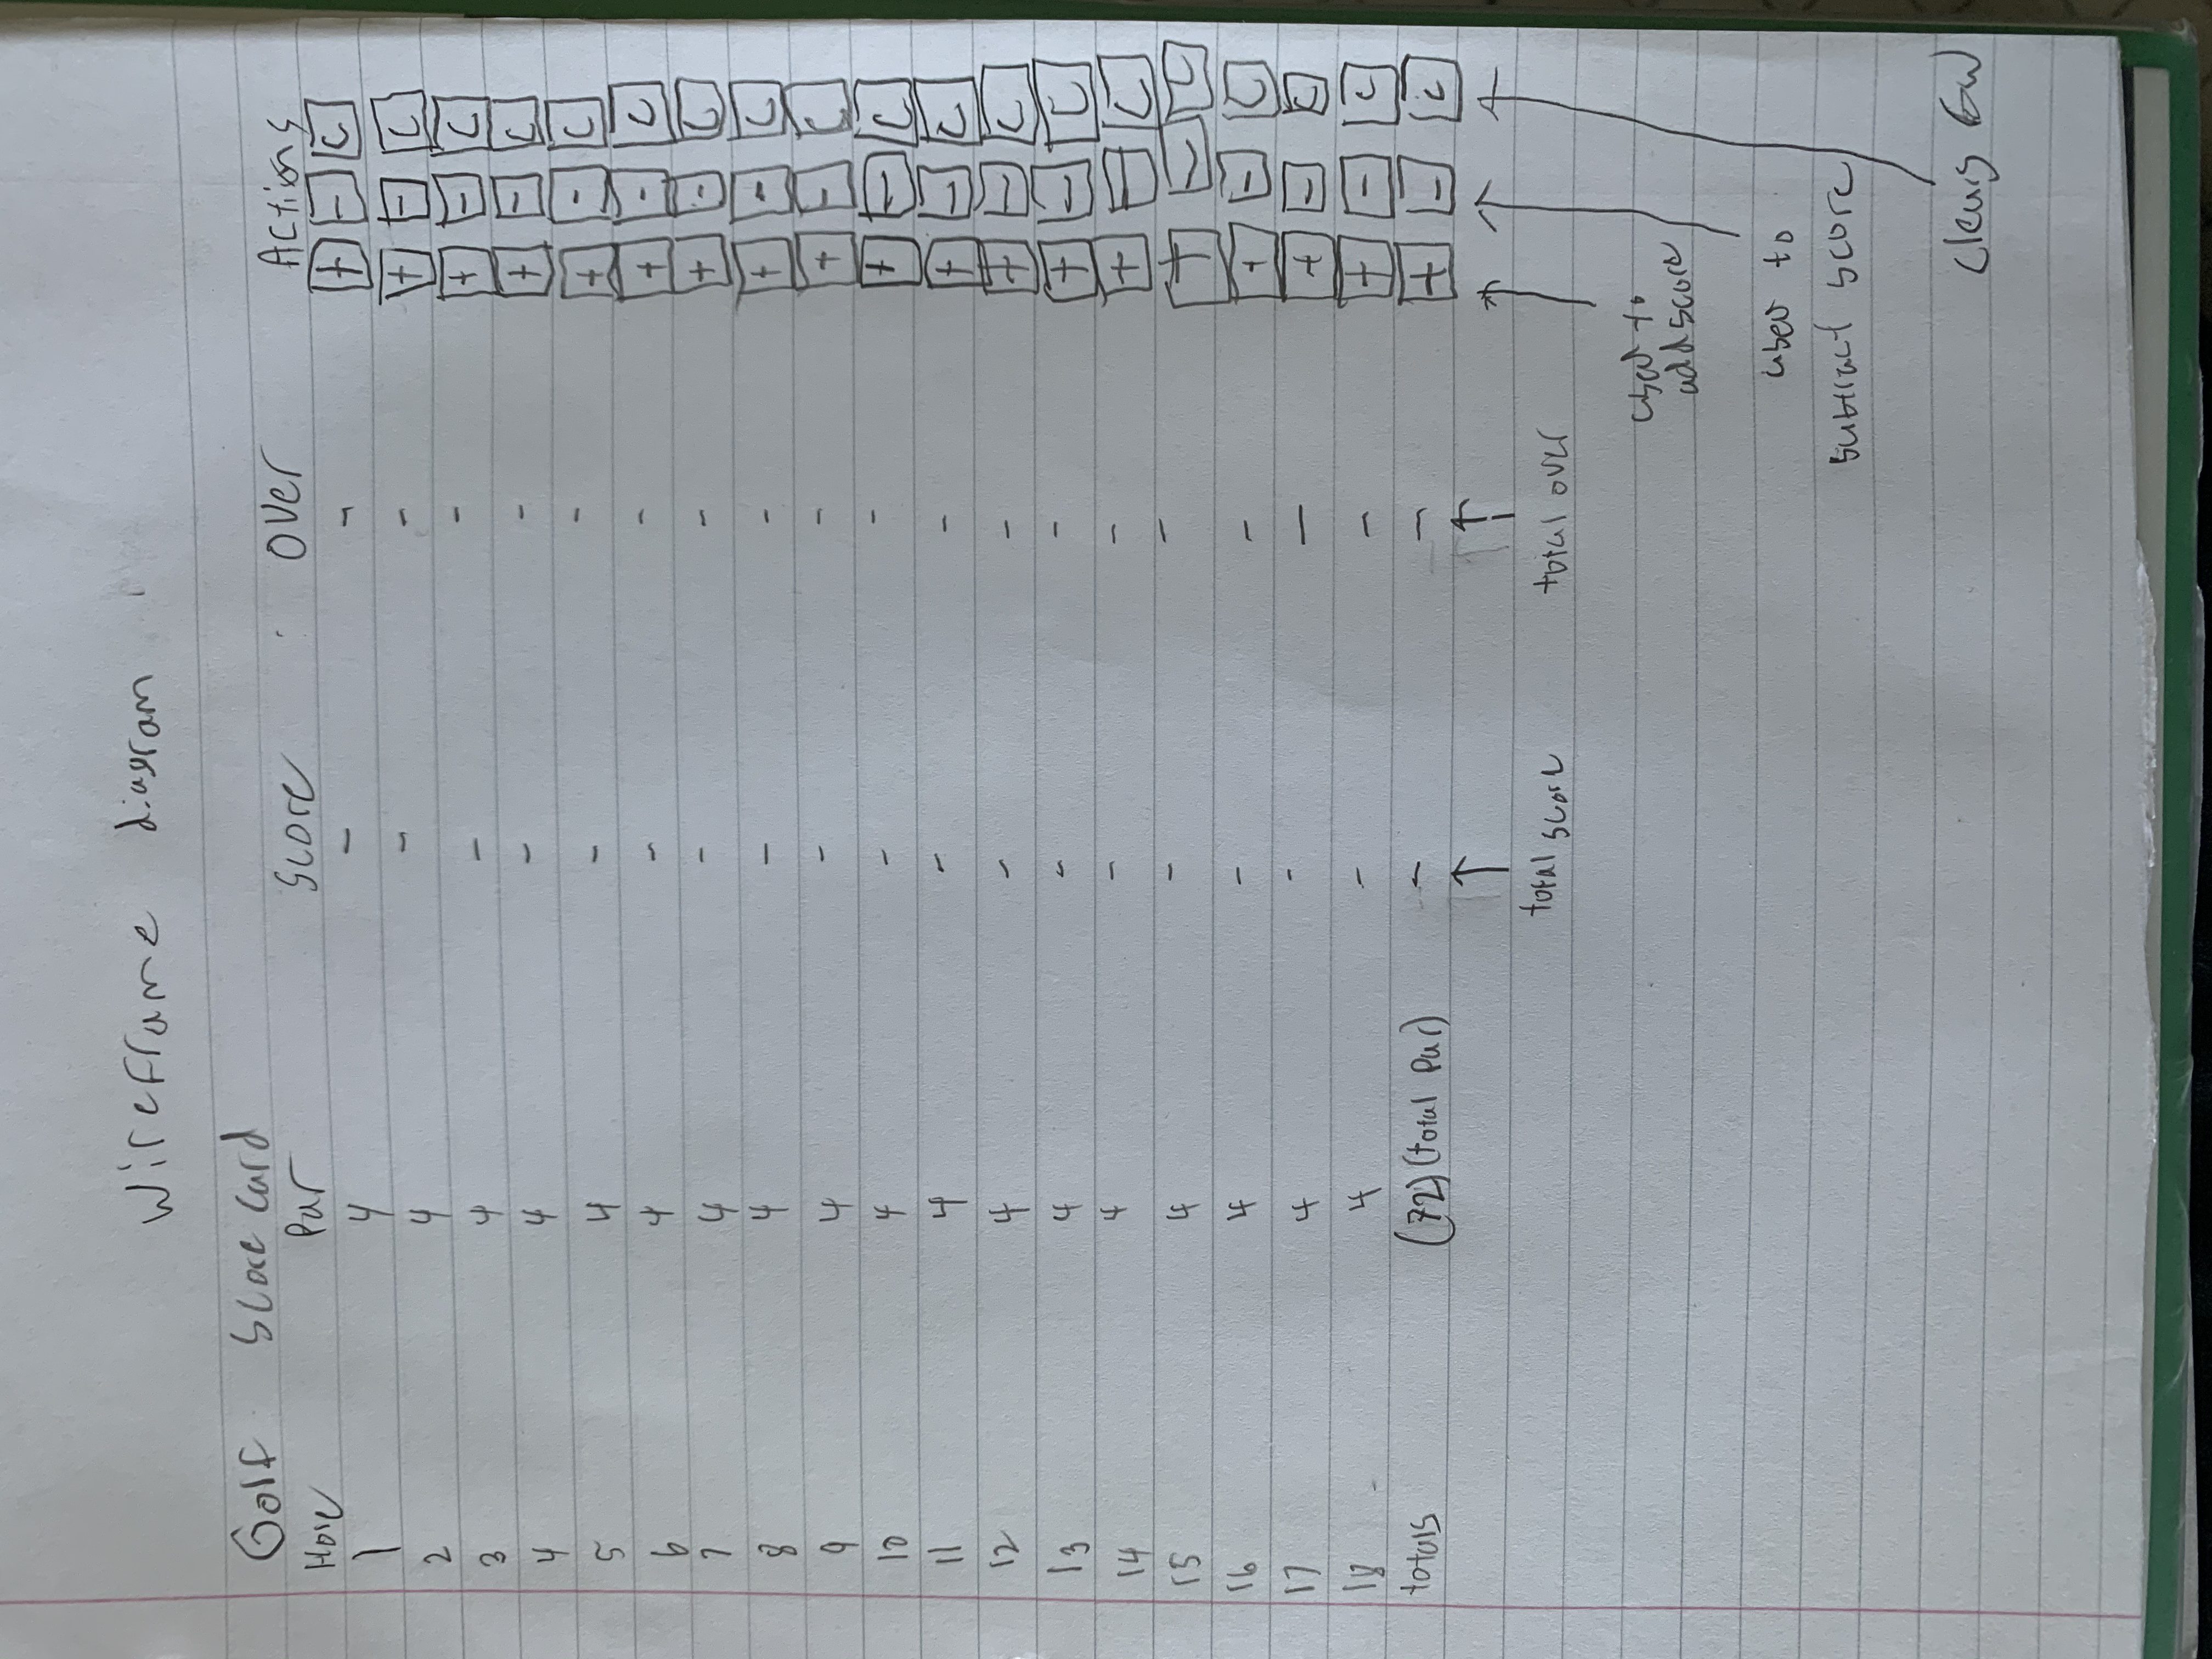 Wireframe diagram
Golf Score Card
Hole Par Score Over Actions
1 4 - - + - C
2 4 - - + - C
3 4 - - + - C
4 4 - - + - C
5 4 - - + - C
6 4 - - + - C
7 4 - - + - C
8 4 - - + - C
9 4 - - + - C
10 4 - - + - C
11 4 - - + - C
12 4 - - + - C
13 4 - - + - C
14 4 - - + - C
15 4 - - + - C
16 4 - - + - C
17 4 - - + - C
18 4 - - + - C
totals (72) (total Par) - - + - C
total score total over
used to
add score
used to
subtract score
clears